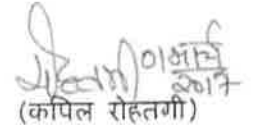 01 मार्च
2017
(कपिल रोहतगी)